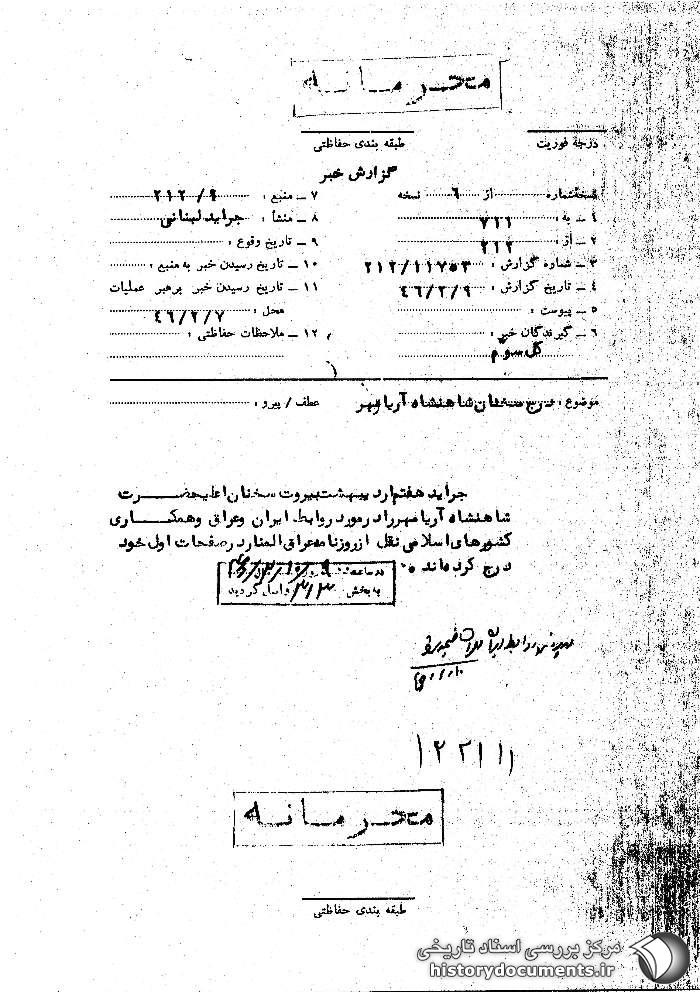 محرمانه
درجه فوریت
طبقه بندی حفاظتی
گزارش خبر
نسخه شماره از ٦ نسخه
١ ــ به : ٧١١
٢ ــ از : ٢١٢
٣ ــ شماره گزارش : ٢١٢/١١٧٥٣
٤ ــ تاریخ گزارش : ٤٦/٢/٩
٥ ــ پیوست :
٦ ــ گیرندگان خبر :
کل سوم
٧ ــ منبع : ٢١٢/٩
٨ ــ منشأ : جراید لبنانی
٩ ــ تاریخ وقوع :
١٠ ــ تاریخ رسیدن خبر به منبع :
١١ ــ تاریخ رسیدن خبر برهبر عملیات
محل : ٤٦/٢/٧
١٢ ــ ملاحظات حفاظتی :
موضوع : درج سخنان شاهنشاه آریامهر
عطف / پیرو :
جراید هفتم اردیبهشت بیروت سخنان اعلیحضرت
شاهنشاه آریامهر را در مورد روابط ایران و عراق و همکاری
کشورهای اسلامی نقل از روزنامه عراقی المنار در صفحات اول خود
درج کرده‌اند ٠
در ساعت
به بخش ٣١٣ واصل گردید
١٢٢١١١
محرمانه
طبقه بندی حفاظتی
مرکز بررسی اسناد تاریخی
historydocuments.ir